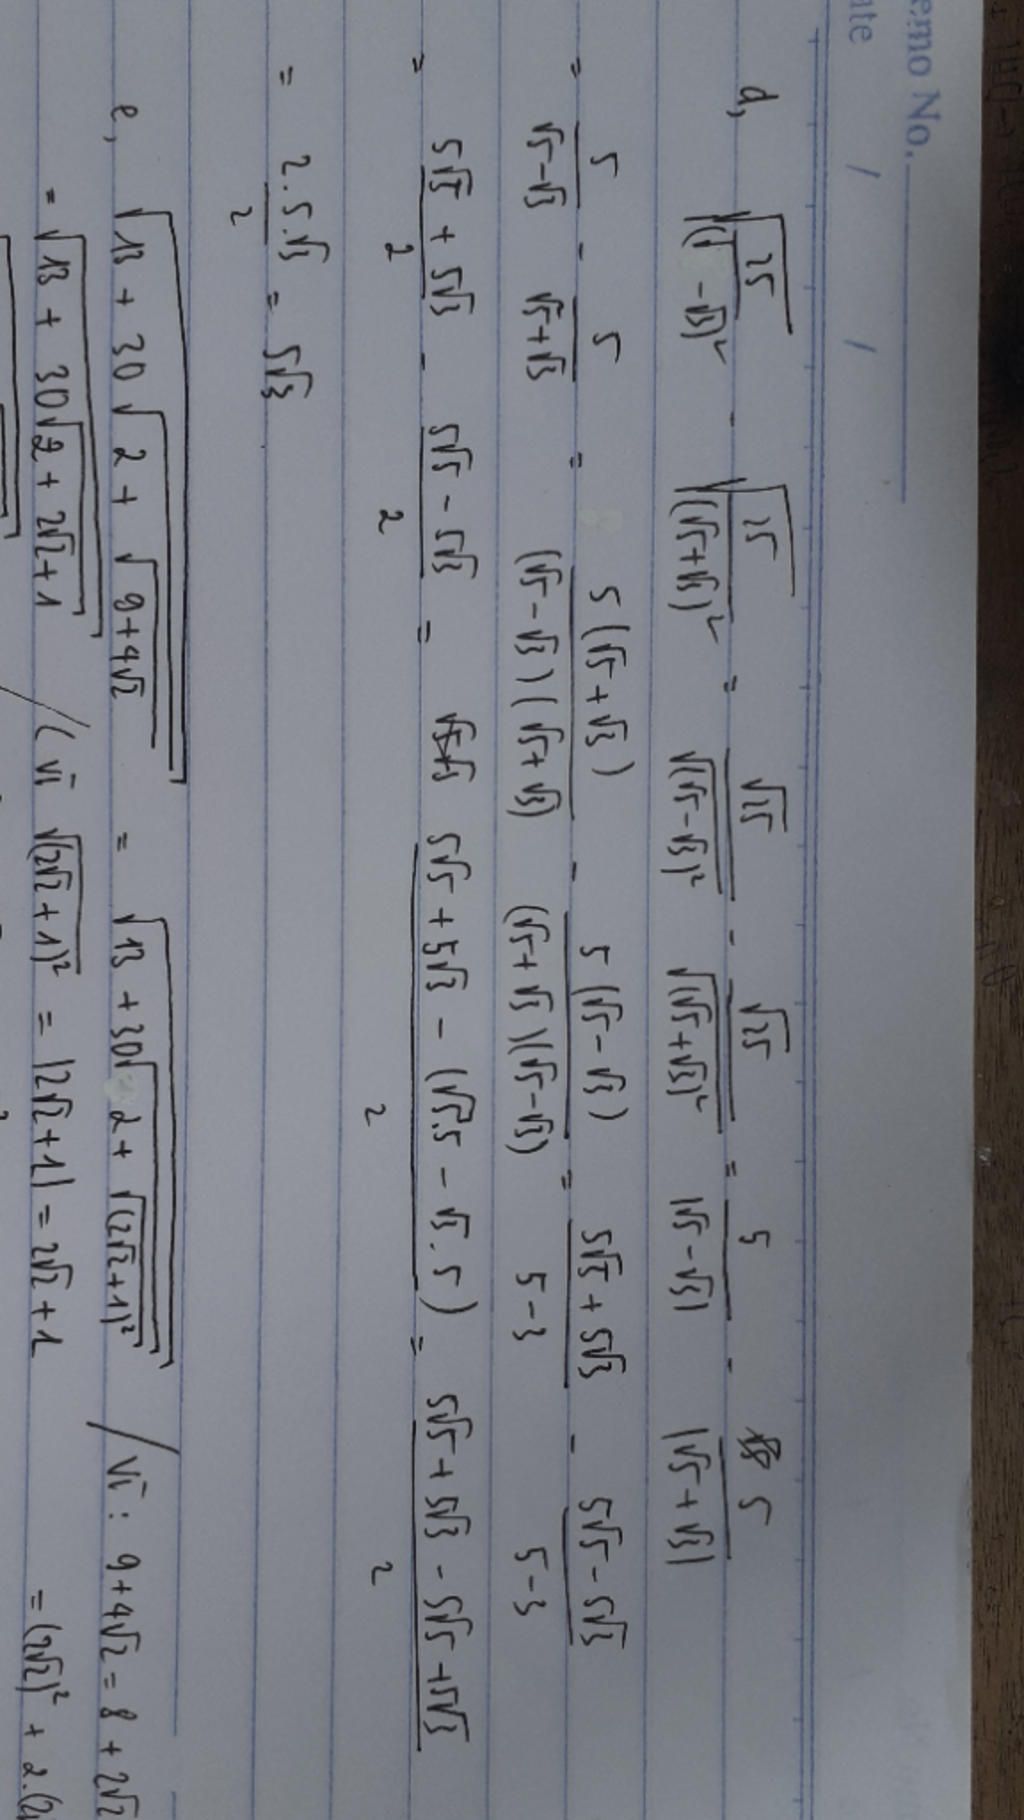 emo No.
ate / /
d, √(25/(√ - √3)²) - √(25/(√5+√3)²) = √25/√(√5-√3)² - √25/√(√5+√3)² = 5/|√5-√3| - 5/|√5+√3|
= 5/(√5-√3) - 5/(√5+√3) = 5(√5+√3)/((√5-√3)(√5+√3)) - 5(√5-√3)/((√5+√3)(√5-√3)) = (5√5+5√3)/(5-3) - (5√5-5√3)/(5-3)
= (5√5+5√3)/2 - (5√5-5√3)/2 = (5√5+5√3-(√5.5-√3.5))/2 = (5√5+5√3-5√5+5√3)/2
= 2.5.√3/2 = 5√3
e, √(13+30√(2+√(9+4√2))) = √(13+30√(2+√(2√2+1)²)) / Vì: 9+4√2 = 8+2√2
= √(13+30√(2+2√2+1)) / (vì √(2√2+1)² = |2√2+1| = 2√2+1 = (2√2)²+2.(2